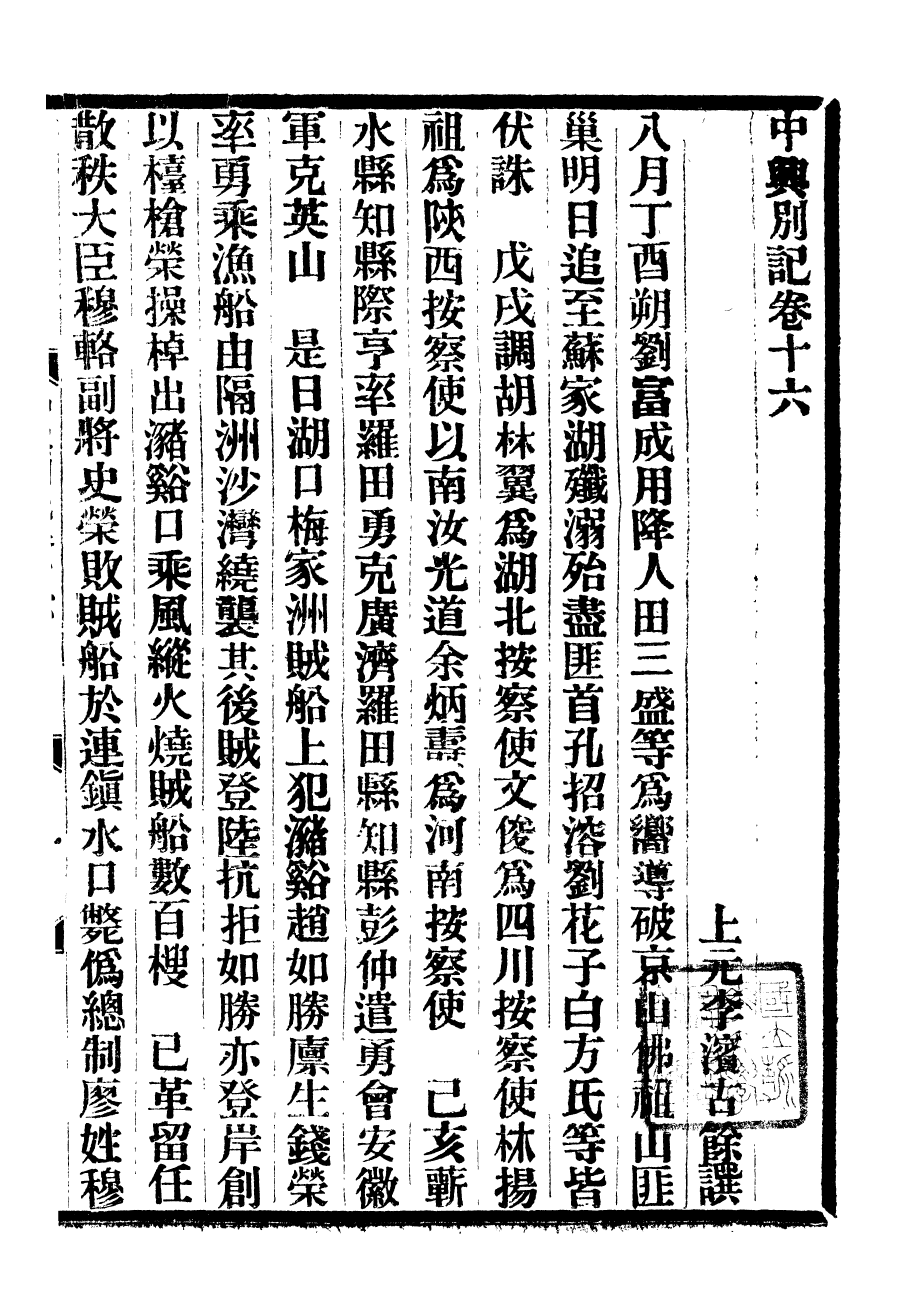 中興別記卷十六
上元李濱古餘譔
八月丁酉朔劉富成用降人田三盛等爲嚮導破京山佛祖山匪
巢明日追至蘇家湖殲溺殆盡匪首孔招溶劉花子白方氏等皆
伏誅　戊戌調胡林翼爲湖北按察使文俊爲四川按察使林揚
祖爲陝西按察使以南汝光道余炳燾爲河南按察使　己亥蘄
水縣知縣際亨率羅田勇克廣濟羅田縣知縣彭仲遣勇會安徽
軍克英山　是日湖口梅家洲賊船上犯瀦谿趙如勝廪生錢榮
率勇乘漁船由隔洲沙灣繞襲其後賊登陸抗拒如勝亦登岸創
以檯槍榮操棹出瀦谿口乘風縱火燒賊船數百艘　已革留任
散秩大臣穆輅副將史榮敗賊船於連鎮水口斃僞總制廖姓穆